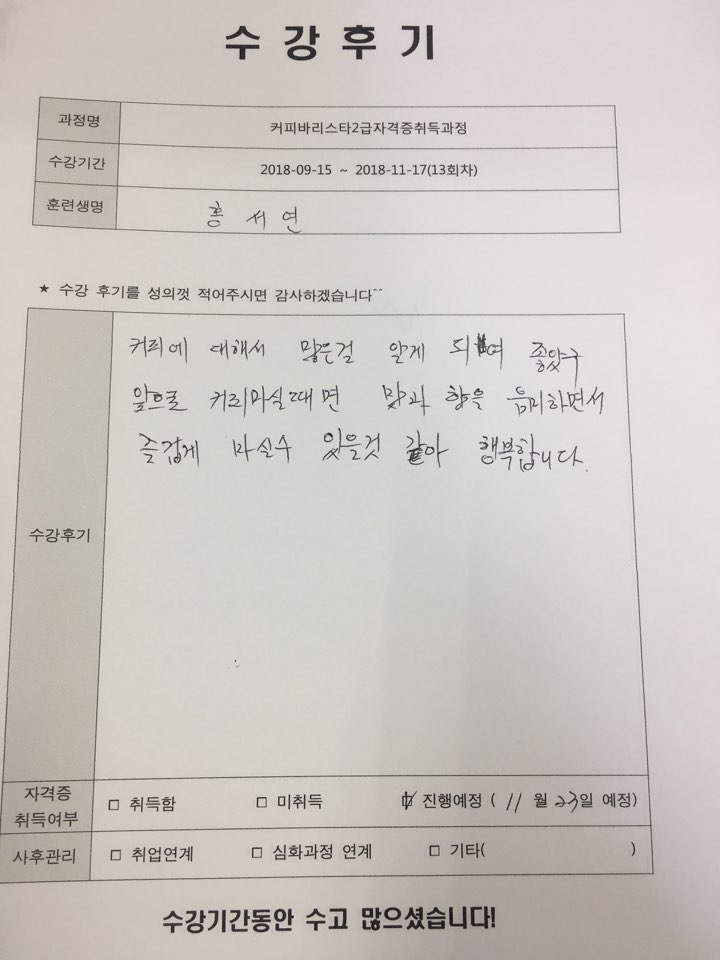 수강후기
과정명 커피바리스타2급자격증취득과정
수강기간 2018-09-15 ~ 2018-11-17(13회차)
훈련생명 홍서연
★ 수강 후기를 성의껏 적어주시면 감사하겠습니다^^
커피에 대해서 많은걸 알게 되여 좋았구
앞으로 커피마실때면 맛과 향을 음미하면서
즐겁게 마실수 있을것 같아 행복합니다.
수강후기
자격증
취득여부 □ 취득함 □ 미취득 ☑ 진행예정 ( 11 월 23일 예정)
사후관리 □ 취업연계 □ 심화과정 연계 □ 기타( )
수강기간동안 수고 많으셨습니다!